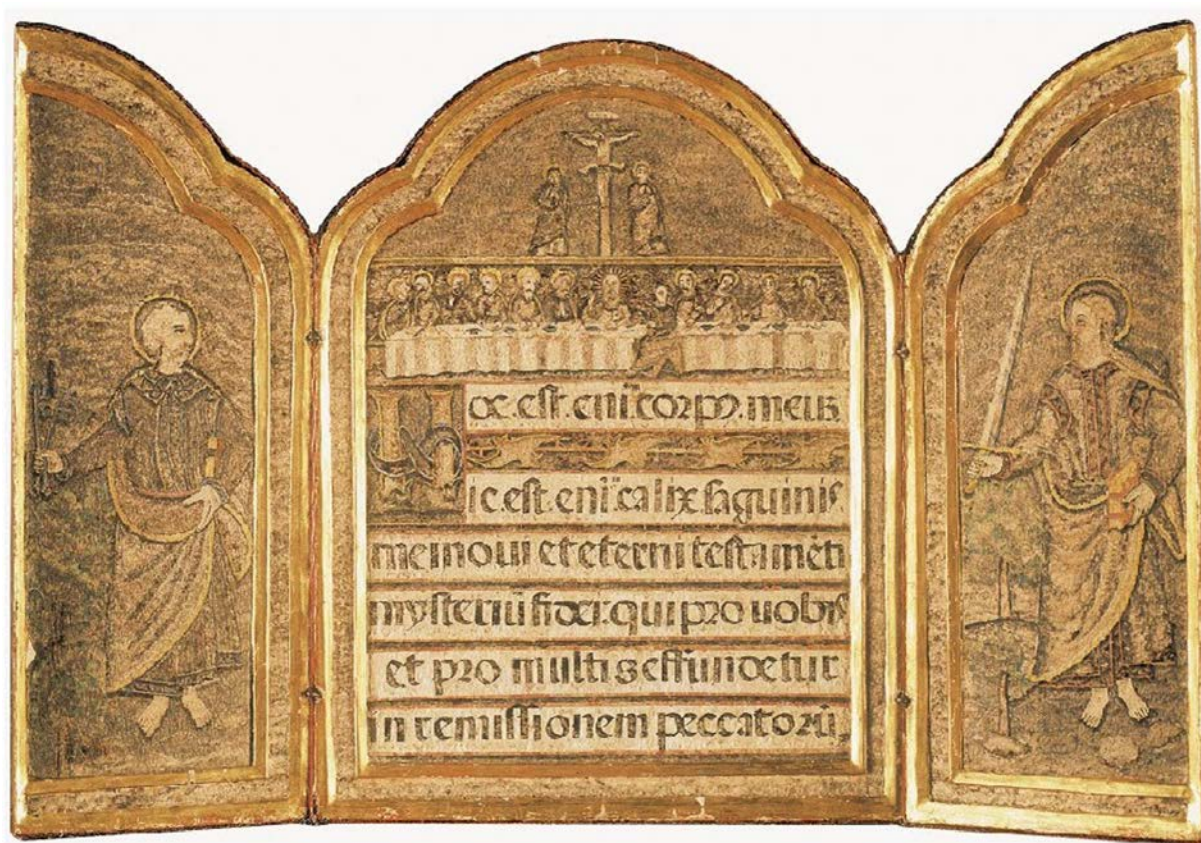 Hoc.est.enī.corpꝰ.meuʒ
Hic.est.enī.calix.sāguinis.
mei noui et eterni testamēti
mysteriū fidei.qui pro uobis
et pro multis effundetur
in remissionem peccatorū,